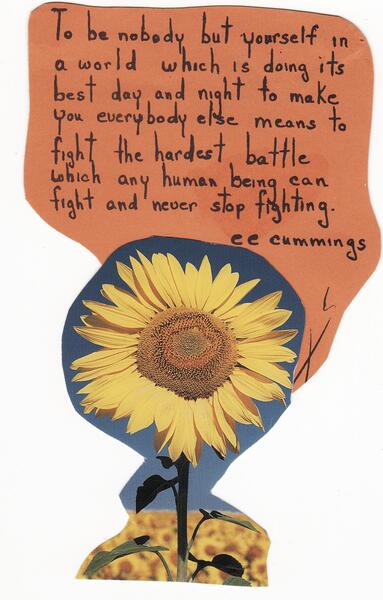 To be nobody but yourself in
a world which is doing its
best day and night to make
you everybody else means to
fight the hardest battle
which any human being can
fight and never stop fighting.
ee cummings